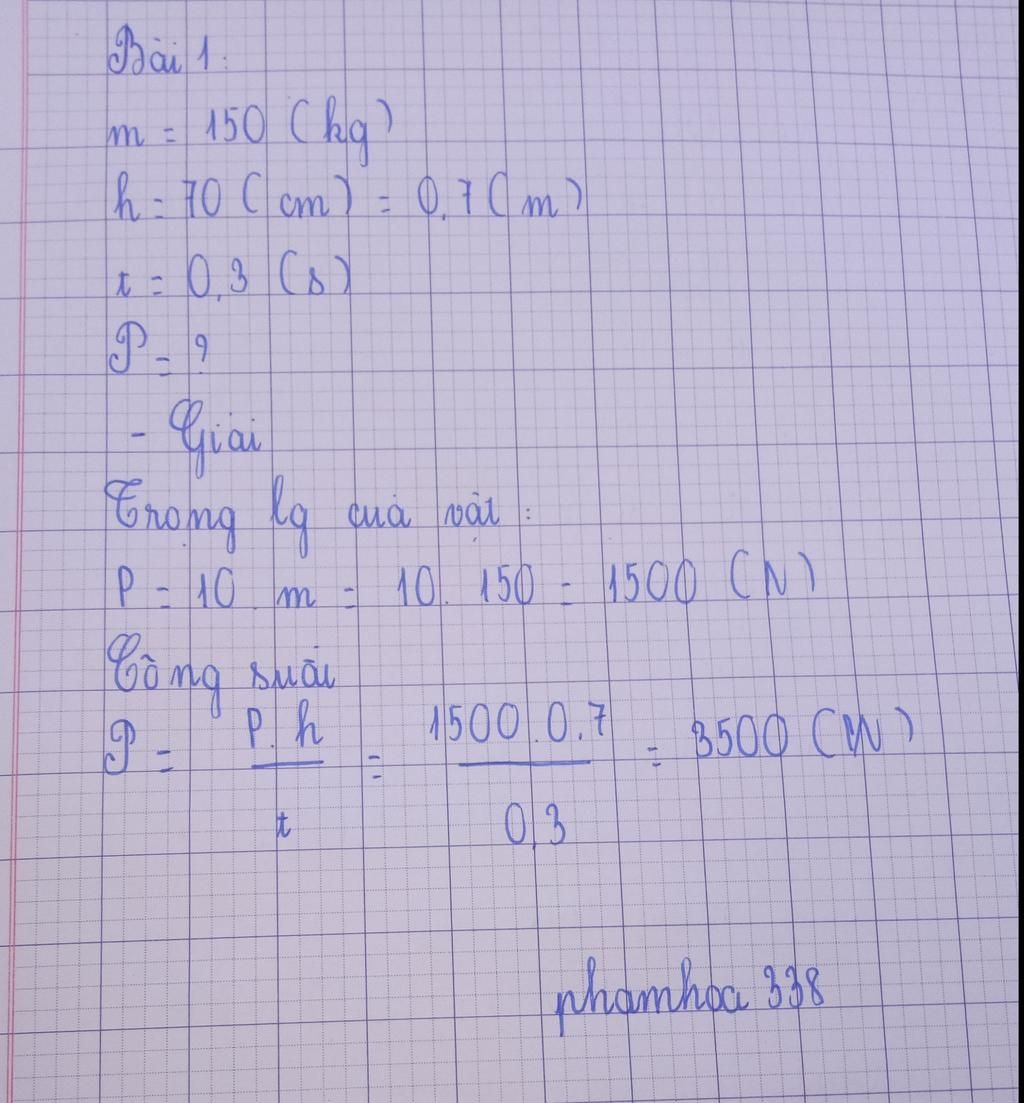 Bài 1:
m = 150 (kg)
h = 70 (cm) = 0,7 (m)
t = 0,3 (s)
P = ?
- Giải
Trọng lg của vật :
P = 10 . m = 10 . 150 = 1500 (N)
Công suất
P = P.h / t = 1500.0,7 / 0,3 = 3500 (W)
phamhoa 338